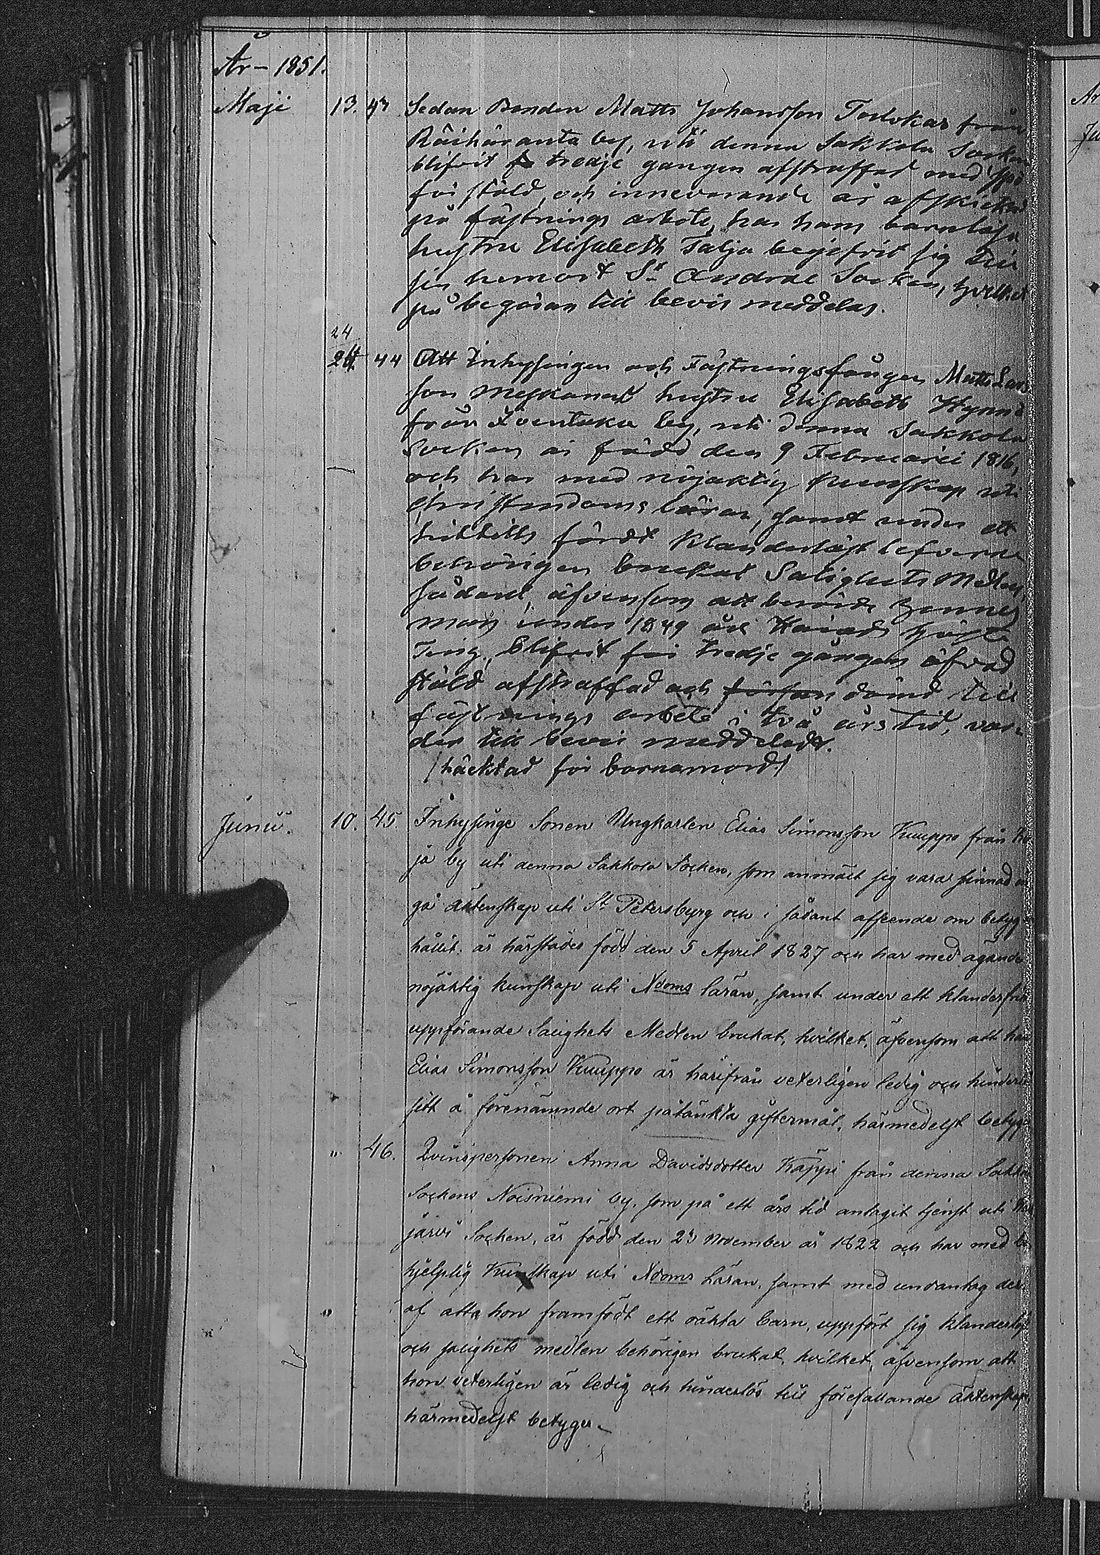 År - 1851.
Maji 13. 43 Sedan Bonden Matts Johansson Torvkar från
Räihäranta by, uti denna Sakkola Socken
blifvit tredje gången afstraffad med
för stöld, och innevarande år afskickad
på fästnings arbete, har hans barnlösa
hustru Elisabeth Talja begifvit sig till
sin hemort St Andrae Socken, hvilket
på begäran till bevis meddelas.
24
24 44 Att Inhysingen och Fästningsfången Matts Lars
son hustru Elisabeth
från by, uti denna Sakkola
Socken är född den 9 Februarii 1816,
och har med nöjaktig kunskap uti
Christendoms läran, samt under ett
hittills fördt klanderlöst lefverne
behörigen brukat Salighets Medlen,
sådant, äfvensom att berörde hennes
man under 1849 års Härads hösta
Ting, blifvit för tredje gången
stöld afstraffad och dömd till
fästnings arbete i två års tid, var-
der till bevis meddeladt.
(häcktad för barnamord)
Junii. 10. 45. Inhysinge Sonen Ungkarlen Elias Simonsson Kuuppo från
ja by uti denna Sakkola Socken, som anmält sig vara sinnad in
gå äktenskap uti St Petersburg och i sådant afseende om betyg
hållit, är härstädes född den 5 April 1827 och har med ägande
nöjaktig kunskap uti Xdoms läran, samt under ett klanderfritt
uppförande Salighets Medlen brukat, hvilket, äfvensom att han
Elias Simonsson Kuuppo är härifrån veterligen ledig och hinderlös
sitt å förenämnde ort påtänkta giftermål, härmedelst betygas
" 46. Qvinspersonen Anna Davidsdotter Käppi från denna Sakkola
Sockens Noisniemi by, som på ett års tid antagit tjenst uti
järvi Socken, är född den 23 November år 1822 och har med
hjelplig kunskap uti Xdoms Läran, samt med undantag der
" af att hon framfödt ett oäkta barn, uppfört sig klanderlöst
och salighets medlen behörigen brukat, hvilket, äfvensom att
hon veterligen är ledig och hinderlös till förefallande äktenskap
härmedelst betygas.